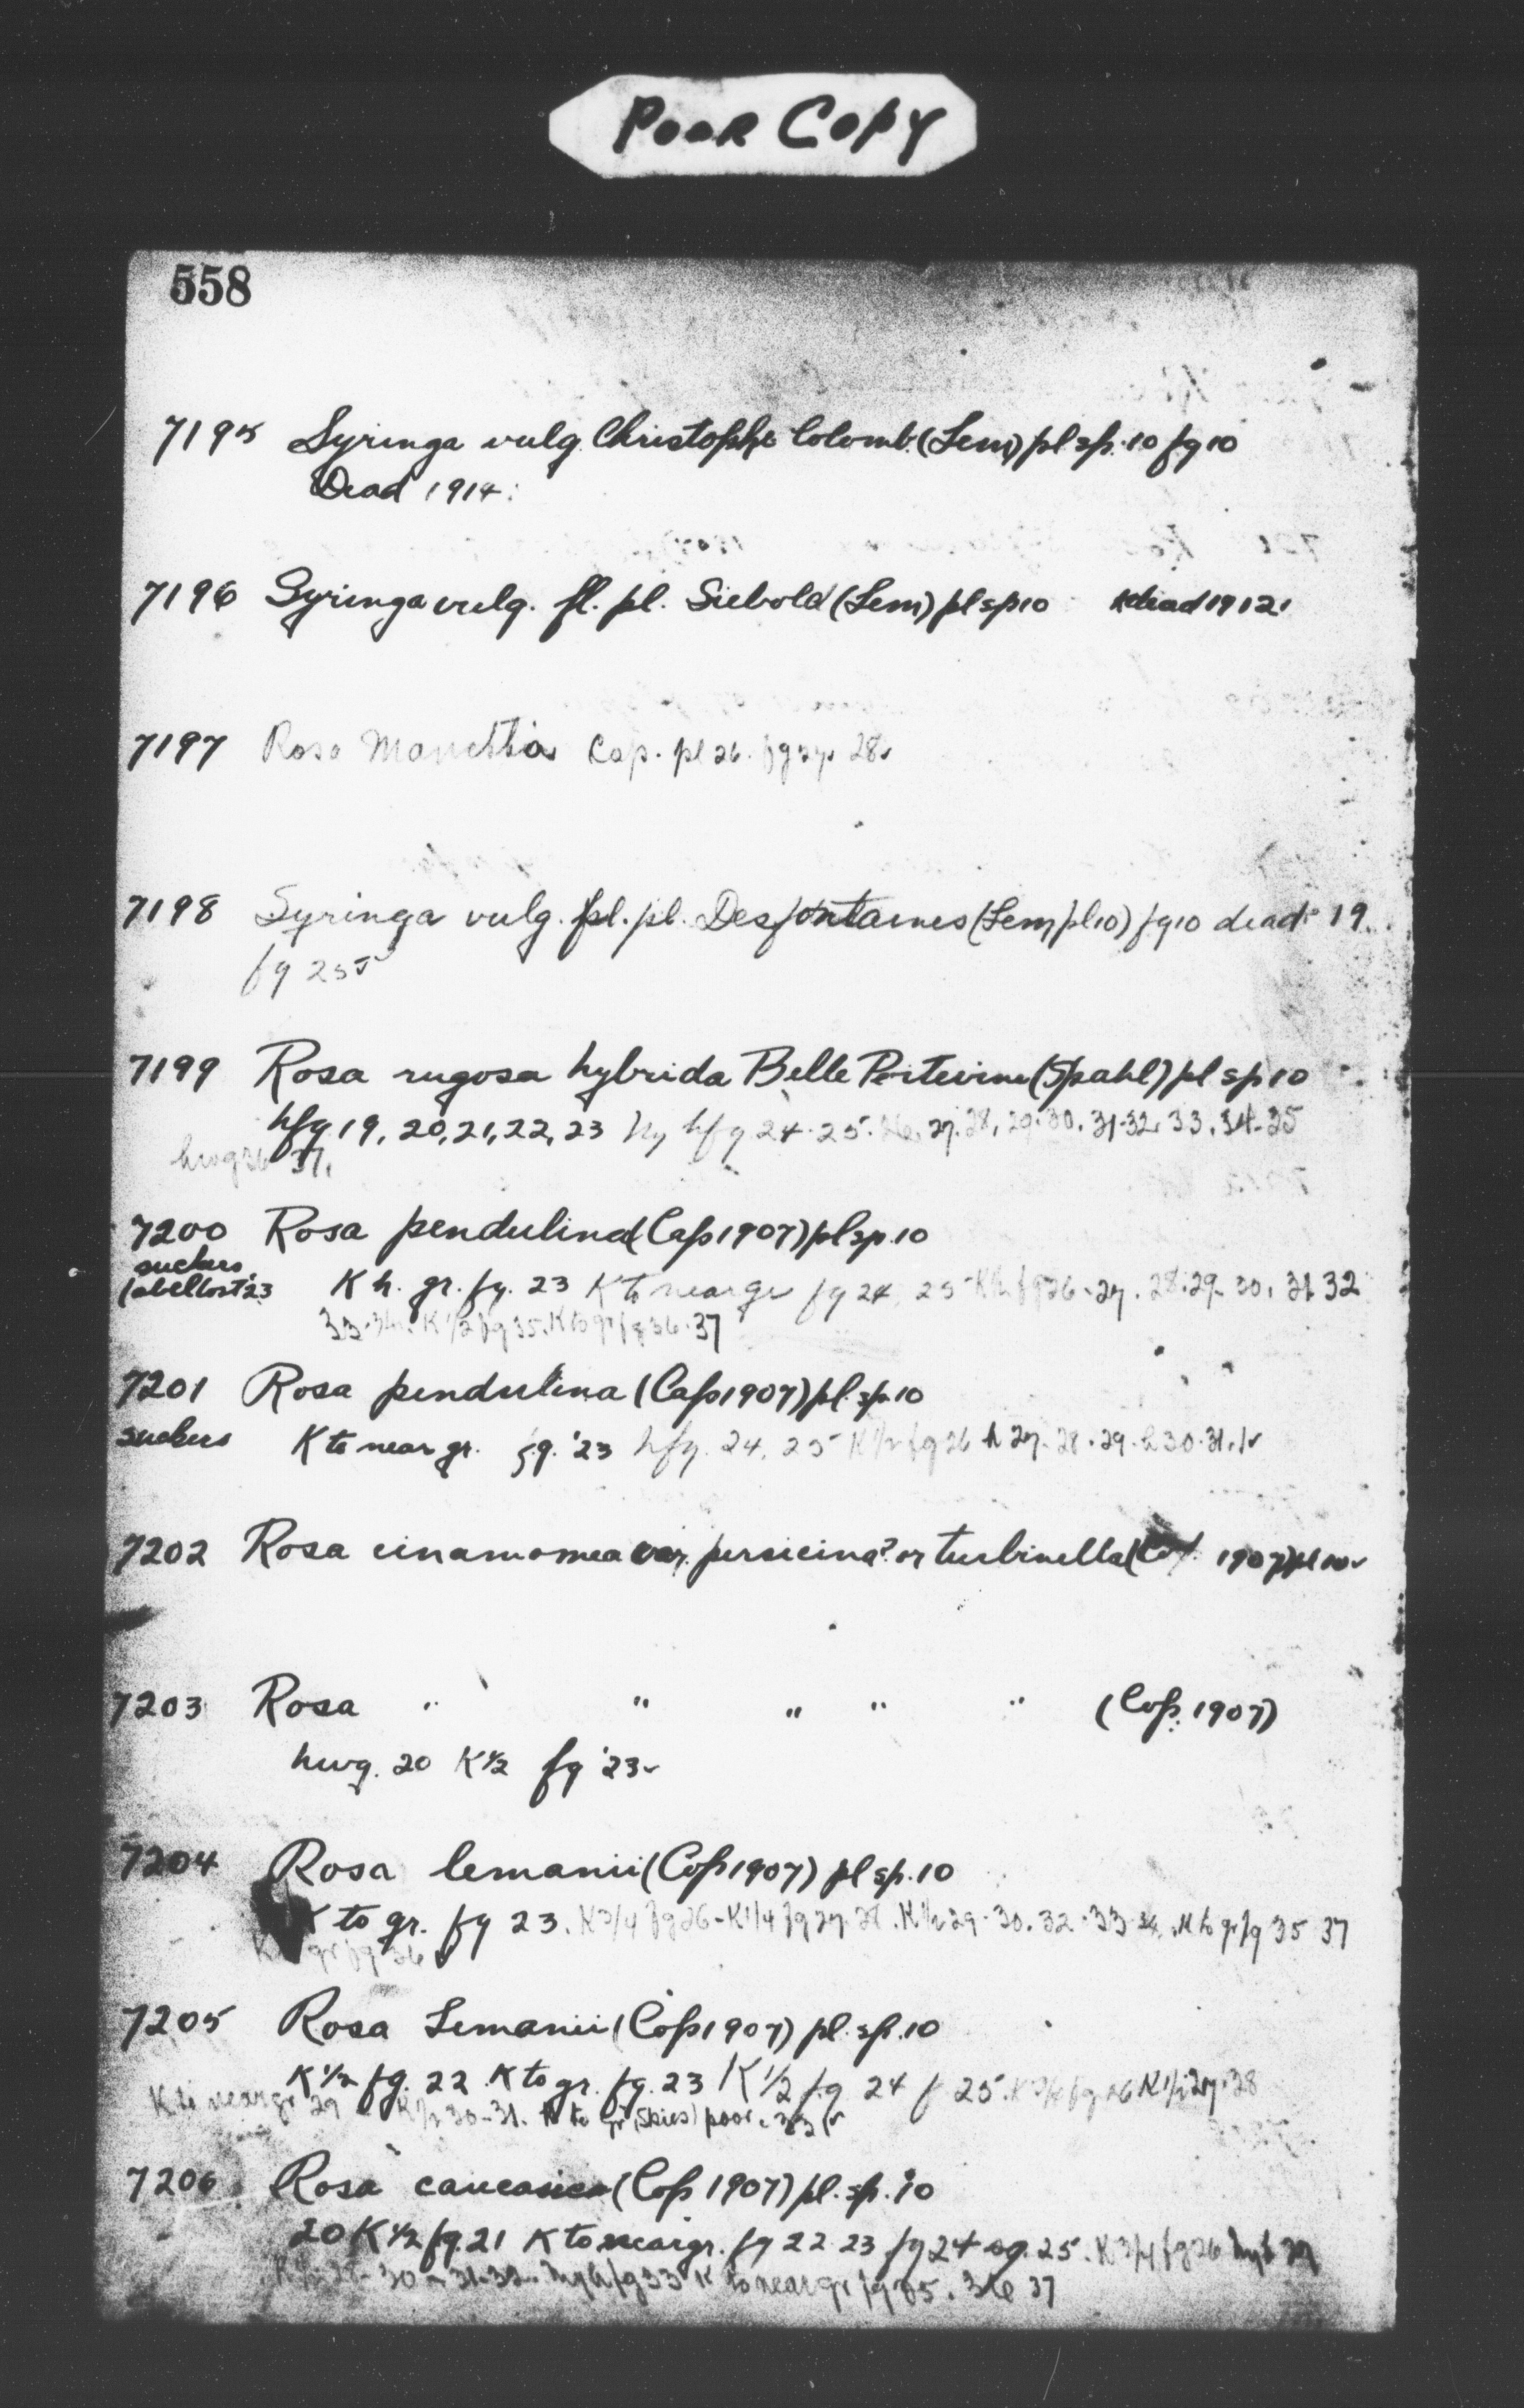 POOR COPY
558
7195 Syringa vulg. Christophe Colomb. (Lem) pl sp. 10 fg 10
Dead 1914.
7196 Syringa vulg. fl. pl. Siebold (Lem) pl sp 10 dead 1912
7197 Rosa Manettia Cop. pl 26. fg 27. 28
7198 Syringa vulg. fl. pl. Desfontaines (Lem pl 10) fg 10 dead 19
fg 25
7199 Rosa rugosa hybrida Belle Poitevine (Spahl) pl sp 10
hfg 19, 20, 21, 22, 23 hfg 24. 25. 26, 27. 28, 29. 30. 31-32. 33. 34-35
hwg 36 37.
7200 Rosa pendulina (Cop 1907) pl sp. 10
suckers
label lost '23 K h. gr. fg. 23 K to near gr fg 24, 25 Kh fg 26-27. 28. 29-30. 31 32
33. 34. K 1/2 fg 35. K to gr fg 36. 37
7201 Rosa pendulina (Cop 1907) pl. sp. 10
suckers K to near gr. fg. '23 hfg. 24, 25 K 1/2 fg 26 h 27. 28. 29. h 30. 31.
7202 Rosa cinamomea var. persicina? or turbinella (Cop. 1907) pl 10
7203 Rosa " " " " " (Cop. 1907)
hwg. 20 K 1/2 fg '23
7204 Rosa lemanii (Cop 1907) pl sp. 10
K to gr. fg 23. K 3/4 fg 26-K 1/4 fg 27. 28. K 1/2 29. 30. 32. 33. 34. K to gr fg 35 37
gr fg 36
7205 Rosa Lemanii (Cop 1907) pl. sp. 10
K 1/2 fg. 22 K to gr. fg. 23 K 1/2 fg 24 f 25. K 3/4 fg 26 K 1/2 27. 28
K to near gr 29 K 1/2 30-31. K to gr (skies) poor. 33
7206 Rosa caucasica (Cop 1907) pl. sp. 10
20 K 1/2 fg. 21 K to near gr. fg 22 23 fg 24 og. 25. K 3/4 fg 26 hyh 27
K 1/2 28-30-31-32. hyh fg 33 K to near gr fg 35. 36 37